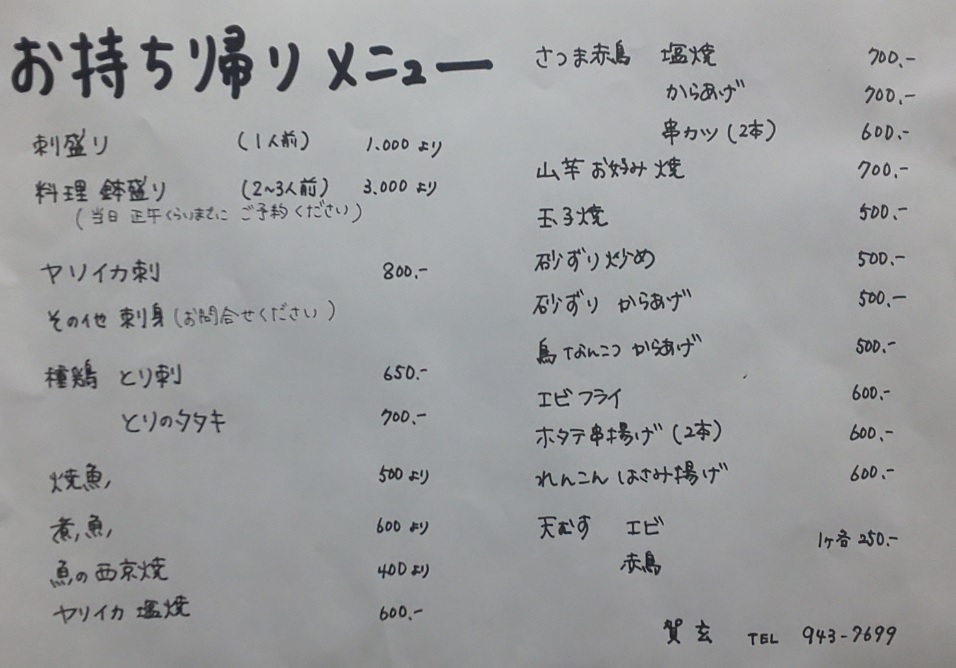 お持ち帰りメニュー
刺盛り (1人前) 1.000より
料理 鉢盛り (2~3人前) 3.000より
(当日 正午くらいまでに ご予約ください)
ヤリイカ刺 800.-
その他 刺身(お問合せください)
種鶏 とり刺 650.-
とりのタタキ 700.-
焼魚 500より
煮魚 600より
魚の西京焼 400より
ヤリイカ 塩焼 600.-
さつま赤鳥 塩焼 700.-
からあげ 700.-
串カツ(2本) 600.-
山芋お好み焼 700.-
玉子焼 500.-
砂ずり炒め 500.-
砂ずり からあげ 500.-
鳥なんこつ からあげ 500.-
エビフライ 600.-
ホタテ串揚げ(2本) 600.-
れんこん はさみ揚げ 600.-
天むす エビ
赤鳥 1ヶ各 250.-
賀玄 TEL 943-7699